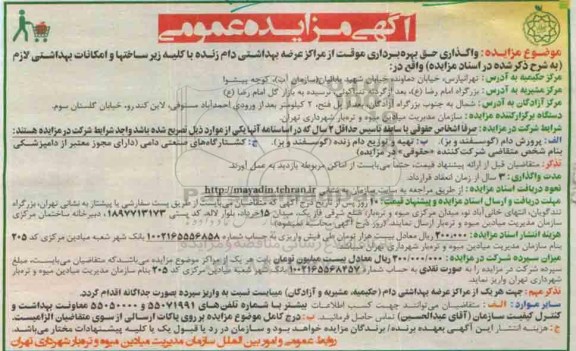 آگهی مزایده عمومی
موضوع مزایده: واگذاری حق بهره‌برداری موقت از مراکز عرضه بهداشتی دام زنده با کلیه زیر ساختها و امکانات بهداشتی لازم
(به شرح ذکر شده در اسناد مزایده) واقع در:
مرکز حکیمیه به آدرس: تهرانپارس، خیابان دماوند، خیابان شهید (سازمان آب)، کوچه پیشوا
مرکز مشیریه به آدرس: بزرگراه امام رضا (ع)، بعد از نرسیده به بازار گل امام رضا (ع)
مرکز آزادگان به آدرس: شمال به جنوب بزرگراه آزادگان، بعد از پل فتح، ۲ کیلومتر بعد از ورودی احمدآباد مستوفی، لاین کندرو، خیابان گلستان سوم.
دستگاه برگزارکننده مزایده: سازمان مدیریت میادین میوه و تره‌بار شهرداری تهران.
شرایط شرکت در مزایده: صرفا اشخاص حقوقی با سابقه تاسیس حداقل ۲ سال که در اساسنامه آنها یکی از موارد ذیل تصریح شده باشد واجد شرایط شرکت در مزایده هستند:
الف: پرورش دام (گوسفند و بز). ب: تهیه و توزیع دام زنده (گوسفند و بز). ج: کشتارگاه‌های صنعتی دامی (دارای مجوز معتبر از دامپزشکی
بنام شخص متقاضی شرکت کننده «حقوقی» در مزایده)
تذکر: متقاضیان قبل از ارائه پیشنهاد قیمت، حتما می‌بایست از اماکن مربوطه بازدید به عمل آورند.
مدت واگذاری: ۳ سال از زمان انعقاد قرارداد.
نحوه دریافت اسناد مزایده: از طریق مراجعه به سایت سازمان به نشانی http://mayadin.tehran.ir
مهلت دریافت و ارسال اسناد مزایده و پیشنهاد قیمت: ۱۰ روز پس از تاریخ درج آگهی که متقاضیان می‌بایست از طریق پست سفارشی یا پیشتاز به نشانی تهران، بزرگراه
تندگویان، انتهای خانی آباد نو، میدان مرکزی میوه و تره‌بار) ضلع شرقی پارک، میدان ۱۵ خرداد، بلوار لاله، کد پستی ۱۸۹۷۷۱۳۱۷۳، دبیرخانه ساختمان مرکزی
سازمان مدیریت میادین میوه و تره‌بار ارسال نمایند.
هزینه انتشار اسناد مزایده: ۲۰۰,۰۰۰ ریال معادل بیست هزار تومان طی فیش واریزی به حساب ۱۰۰۲۱۶۵۵۵۶۸۵۸ بانک شهر شعبه میادین مرکزی کد ۲۰۵
بنام سازمان مدیریت میادین میوه و تره‌بار شهرداری تهران
میزان سپرده شرکت در مزایده: ۲۰۰/۰۰۰/۰۰۰ ریال معادل بیست میلیون تومان بابت هر یک از مراکز موضوع مزایده می‌باشد که متقاضیان می‌بایست، مبلغ
سپرده شرکت در مزایده را به صورت نقدی به حساب شماره ۱۰۰۲۱۶۵۵۶۸۲۵۷ بانک شهر شعبه میادین مرکزی کد ۲۰۵ بنام سازمان مدیریت میادین میوه و تره‌بار
شهرداری تهران واریز نمایند.
تذکر مهم: جهت هر یک از مراکز عرضه بهداشتی دام (حکیمیه، مشیریه و آزادگان) میبایست نسبت به واریز سپرده بصورت جداگانه اقدام گردد.
سایر موارد: الف: متقاضیان می‌توانند جهت کسب اطلاعات بیشتر با شماره تلفن‌های ۵۵۰۷۱۹۹۱ و ۵۵۰۵۰۰۰۰ معاونت بهداشت و
کنترل کیفیت سازمان (آقای عبدالحسین) تماس حاصل فرمائید. ب: درج کامل موضوع مزایده بر روی پاکات ارسالی از سوی متقاضیان الزامیست.
ج: هزینه انتشار این آگهی بعهده برنده/برندگان مزایده خواهد بود و سازمان در رد یا قبول یک یا کلیه پیشنهادات مختار می‌باشد.
روابط عمومی و امور بین الملل سازمان مدیریت میادین میوه و تره‌بار شهرداری تهران